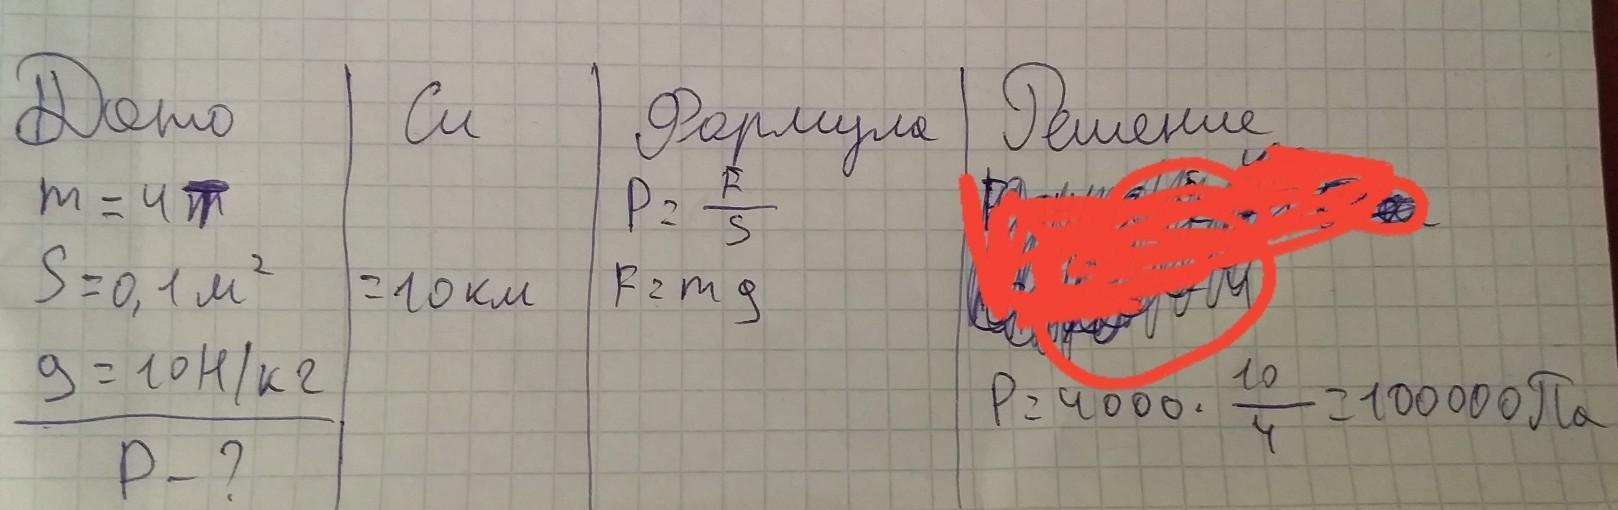 Дано
Си
Формула
Решение
m = 4т
P = F/S
S = 0,1 м²
= 10 км
F = mg
g = 10 Н/кг
P = 4000 · 10/4 = 100000 Па
P - ?